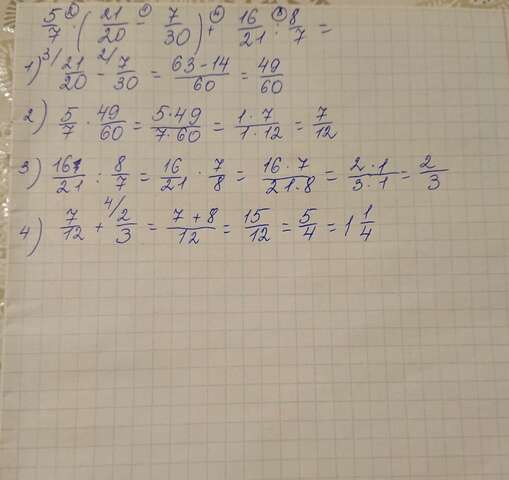 5/7 · (21/20 − 7/30) + 16/21 : 8/7 =
1) 3/ 21/20 − 2/ 7/30 = 63 − 14/60 = 49/60
2) 5/7 · 49/60 = 5·49/7·60 = 1·7/1·12 = 7/12
3) 16/21 : 8/7 = 16/21 · 7/8 = 16·7/21·8 = 2·1/3·1 = 2/3
4) 7/12 + 4/ 2/3 = 7+8/12 = 15/12 = 5/4 = 1 1/4